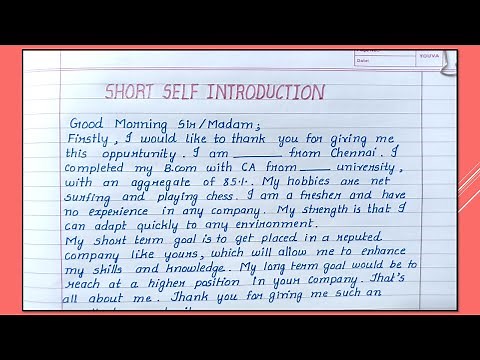 YOUVA
Date:
SHORT SELF INTRODUCTION
Good Morning Sir/Madam;
Firstly, I would like to thank you for giving me
this oppurtunity. I am ______ from Chennai. I
completed my B.com with CA from ____ university,
with an aggregate of 85%. My hobbies are net
surfing and playing chess. I am a fresher and have
no experience in any company. My strength is that I
can adapt quickly to any environment.
My short term goal is to get placed in a reputed
company like yours, which will allow me to enhance
my skills and knowledge. My long term goal would be to
reach at a higher position in your company. That's
all about me. Thank you for giving me such an